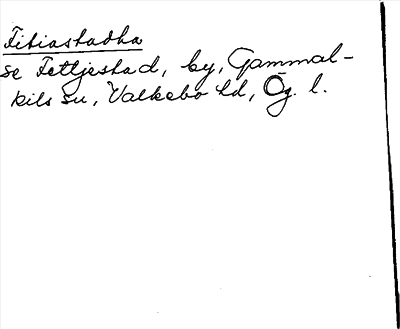 Fitiastadha
se Fettjestad, by, Gammal-
kils sn, Valkebo hd, Ög. l.